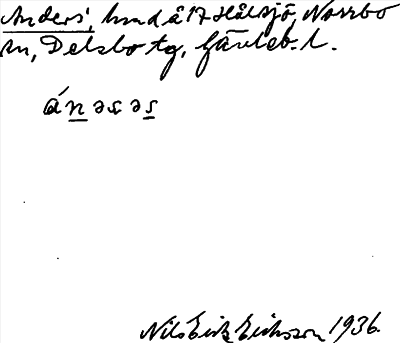 Anders', hmd å 17 Hålsjö, Norrbo
sn, Delsbo tg, Gävleb. l.
á n ə s ə s
Nils Erik Eriksson 1936.